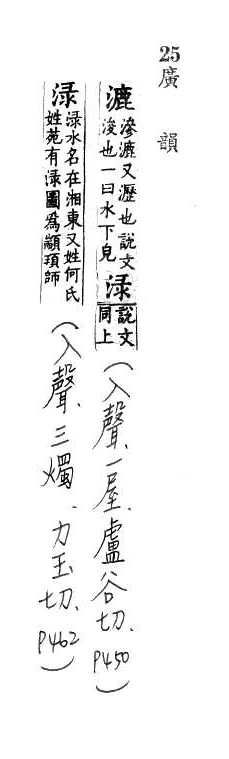 25廣韻
漉滲漉又瀝也說文
浚也一曰水下皃渌說文
同上(入聲、一屋、盧谷切、P450)
渌渌水名在湘東又姓何氏
姓苑有渌圖為顓頊師(入聲、三燭、力玉切、P462)